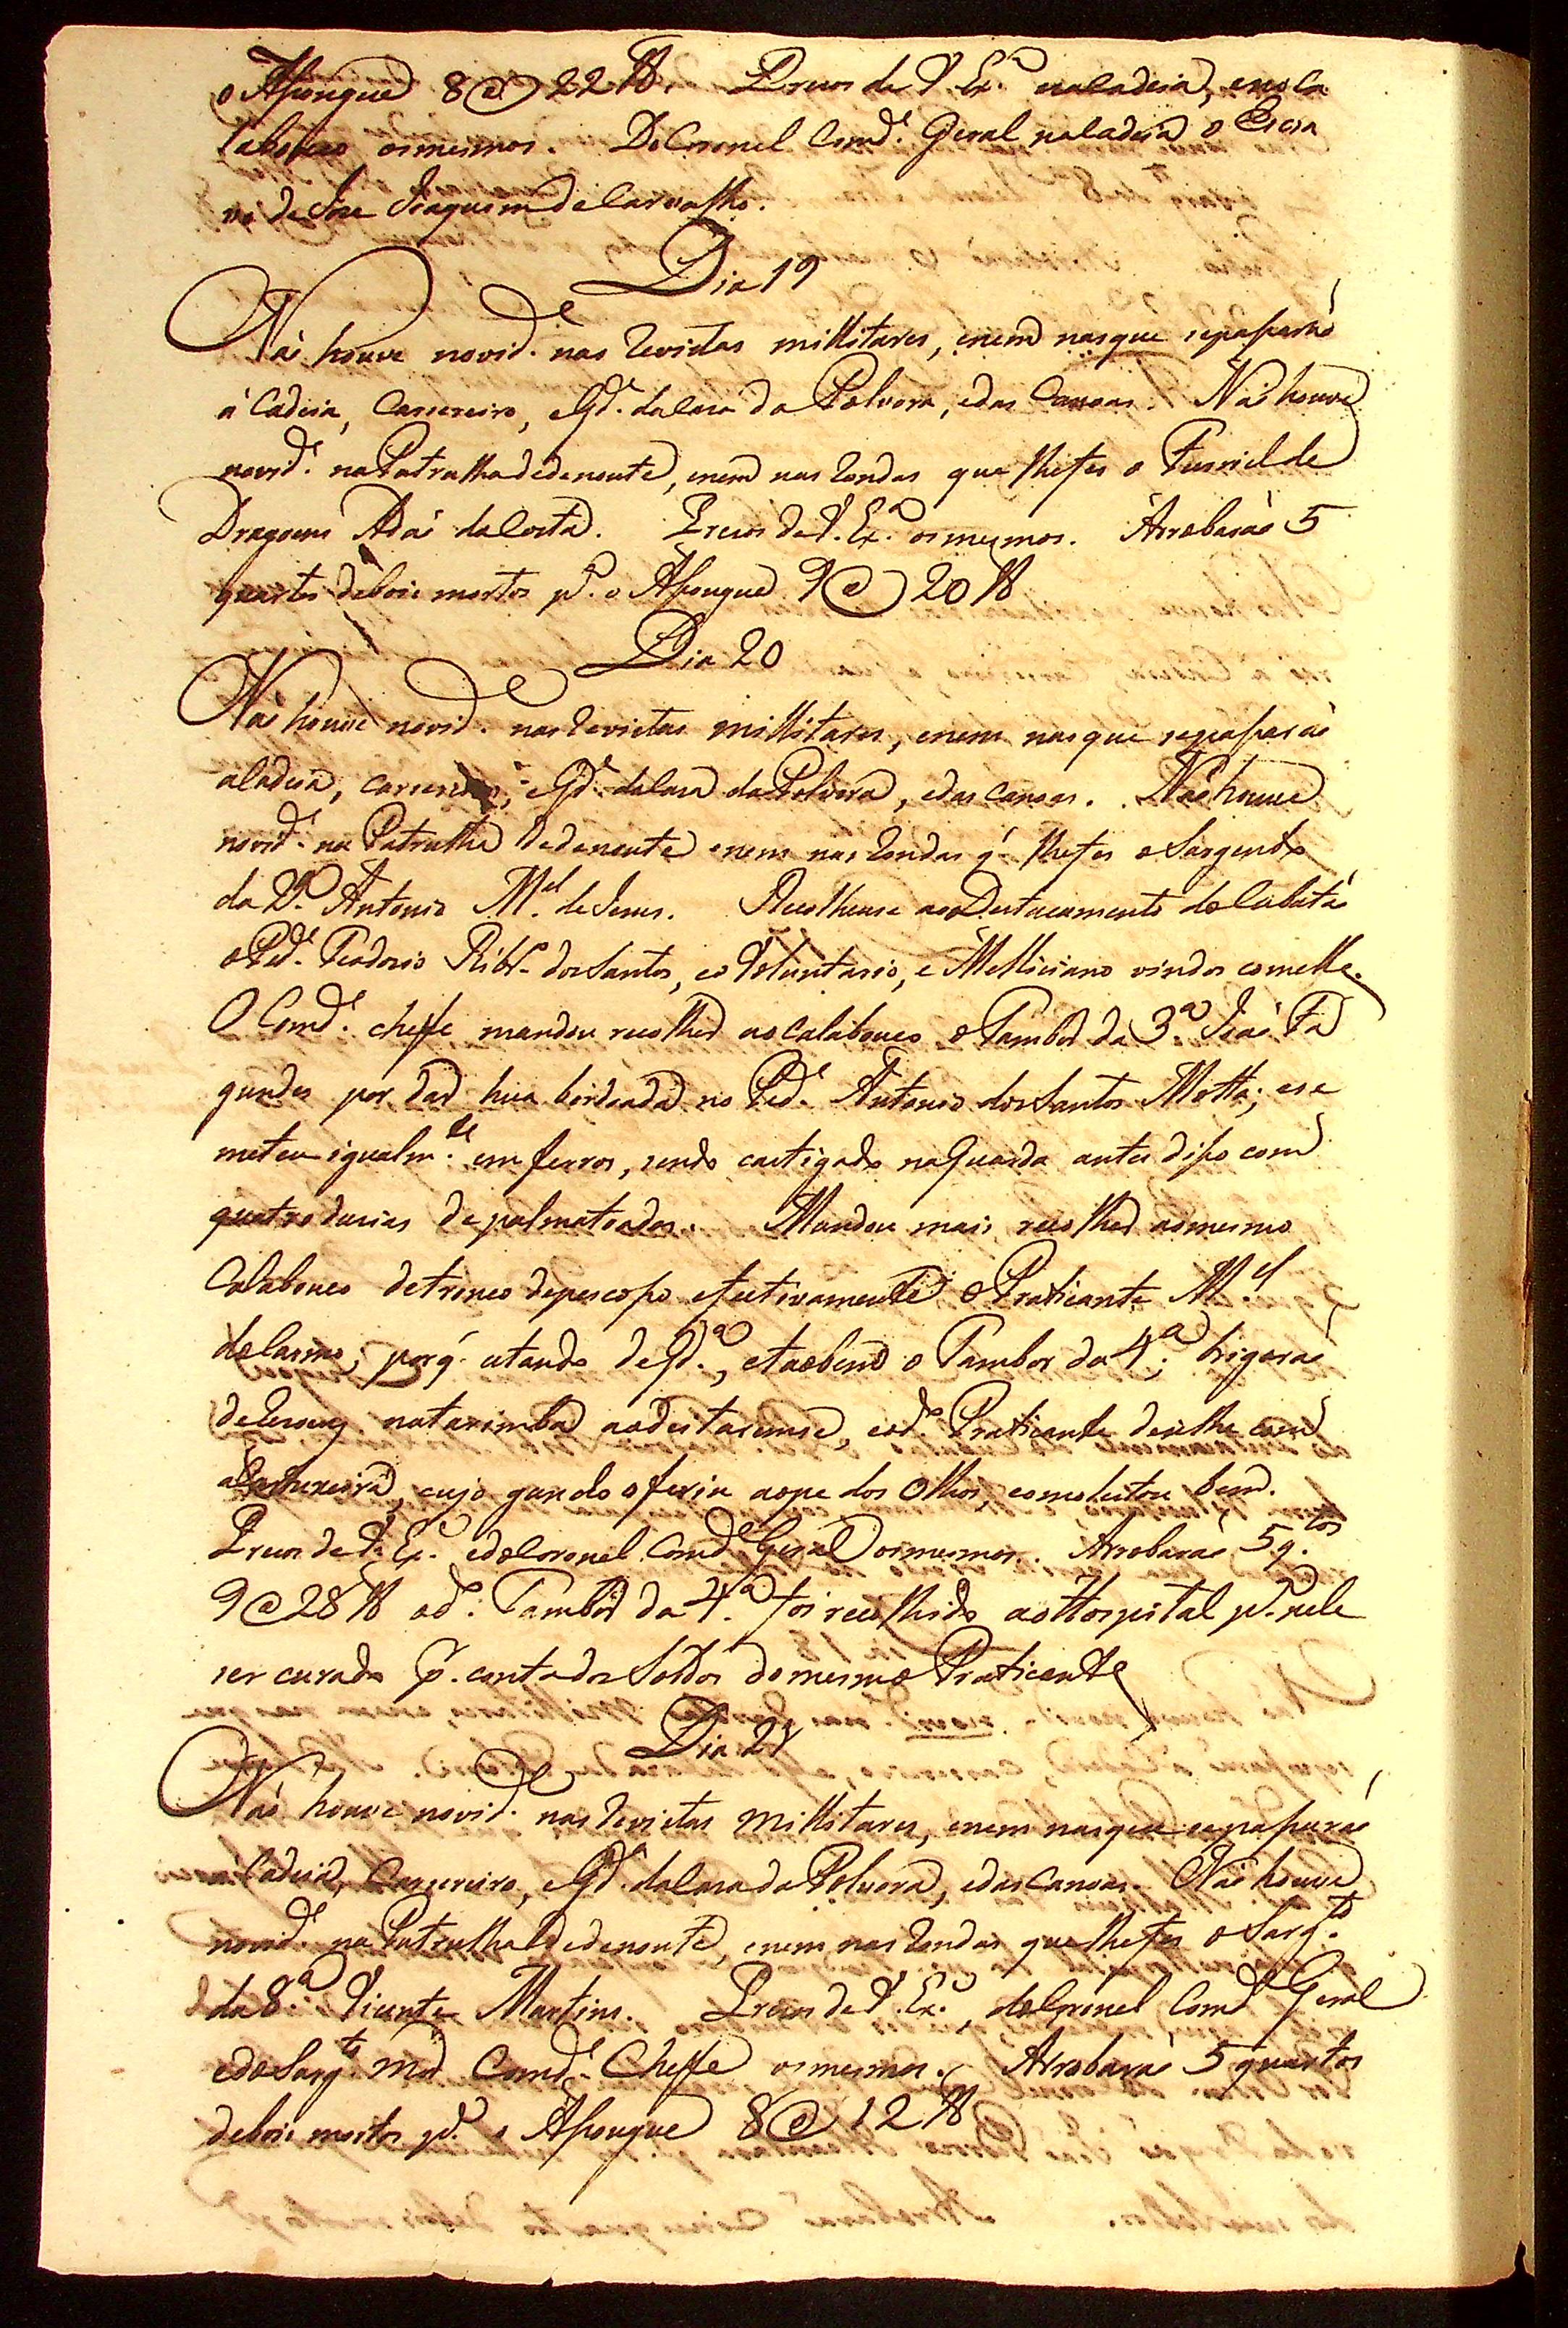 o Asougue 8@22 lb. Prezos de V. Ex.ª na Cadeia, e no Ca
labouco os mesmos. Do Coronel Comd.e Geral na Cadeia o Escra
vo de Joze Joaquim de Carvalho.
Dia 19
Não houve novid.e nas revistas millitares, e nem nas que se pasarão
á Cadeia, Carcereiro, e Gd.ª da Casa da Polvora, e das Canoas. Não houve
novid.e na Patrulha de denoute, e nem nas rondas que lhe fes o Furriel de
Dragoens Adão da Costa. Prezos de V. Ex.ª os mesmos. Arrobarão 5
quartos de bois mortos p.ª o Asougue 9@20 lb
Dia 20
Não houve novid.e nas revistas millitares, e nem nas que se pasarão
a Cadeia, carcereiro, e Gd.ª da Casa da Polvora, e das canoas. Não houve
novid.e na Patrulha de denoute e nem nas rondas q. lhe fes o Sargento
da 2.ª Antonio M.el de Jesus. Recolheuse ao Destacamento do Cubatão
o Ped.e Teodozio Ribr.o dos Santos, e o Voluntario, e Melliciano vindos com elle.
O Comd.e cheffe mandou recolher ao Calabouco o Tambor da 3.ª João Fa
gundes por dar hua bordoada no Ped.e Antonio dos Santos Motta; e se
meteu igualm.te em ferros, sendo castigado na Guarda antes diso com
quatro duzias de palmatoadas. Mandou mais recolher ao mesmo
Calabouco de tronco de pescoso efectivamente o Praticante M.el
do Carmo; porq. estando de Gd.ª, e tãobem o Tambor da 4.ª brigarão
de na tarimba ao destarense, e o d.o Praticante deulhe com
a, cujo gancho o feriu ao pe dos Olhos, e o molestou bem.
Prezos de V. Ex.ª e do Coronel Comd.e Geral os mesmos. Arrobarão 5 q.tos
9@28 lb o d.o Tambor da 4.ª foi recolhido ao Hospital p.ª nele
ser curado p. conta dos Soldos do mesmo Praticante
Dia 21
Não houve novid.e nas revistas millitares, e nem nas que se pasarão
a Cadeia, Carcereiro, e Gd.ª da Casa da Polvora, e das Canoas. Não houve
novid.e na Patrulha de denoute, e nem nas rondas que lhe fes o Sarg.to
da 8.ª Vicente Martins. Prezos de V. Ex.ª, do Coronel Comd.e Geral
e do Sarg.to Mor Comd.e Cheffe os mesmos. Arrobarão 5 quartos
de bois mortos p.ª o Asougue 8@12 lb